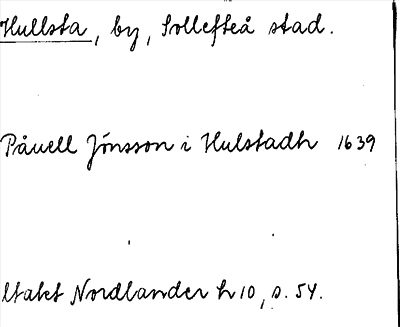 Hullsta, by, Sollefteå stad.
Påuell Jónsson i Hulstadh 1639
Utalet Nordlander h 10, s. 54.